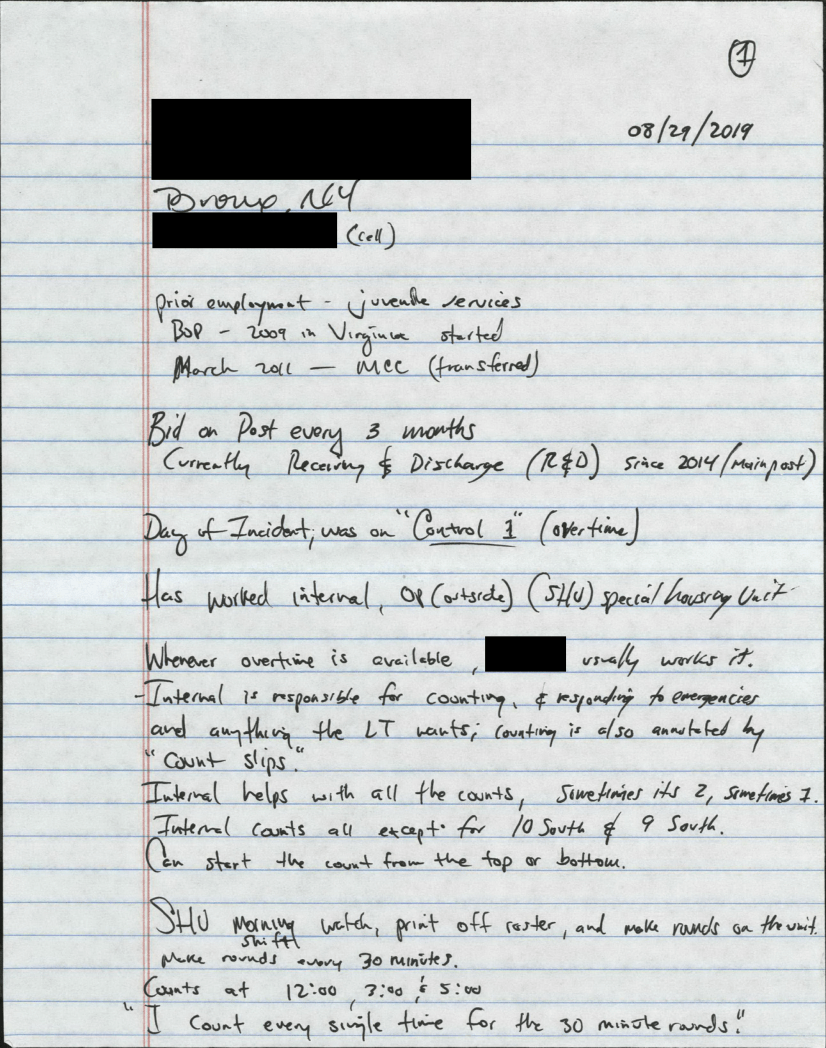 1
08/29/2019
Bronx, NY
(cell)
prior employment - juvenile services
BOP - 2009 in Virginia started
March 2011 — MCC (transferred)
Bid on Post every 3 months
Currently Receiving & Discharge (R&D) since 2014/(Main post)
Day of Incident, was on "Control 1" (overtime)
Has worked internal, OP (outside) (SHU) special housing Unit
Whenever overtime is available, usually works it.
-Internal is responsible for counting, & responding to emergencies
and anything the LT wants; counting is also annotated by
"Count slips."
Internal helps with all the counts, sometimes its 2, sometimes 1.
Internal counts all except for 10 South & 9 South.
Can start the count from the top or bottom.
SHU Morning watch, print off roster, and make rounds on the unit.
shift
Make rounds every 30 minutes.
Counts at 12:00, 3:00, & 5:00
"I count every single time for the 30 minute rounds."